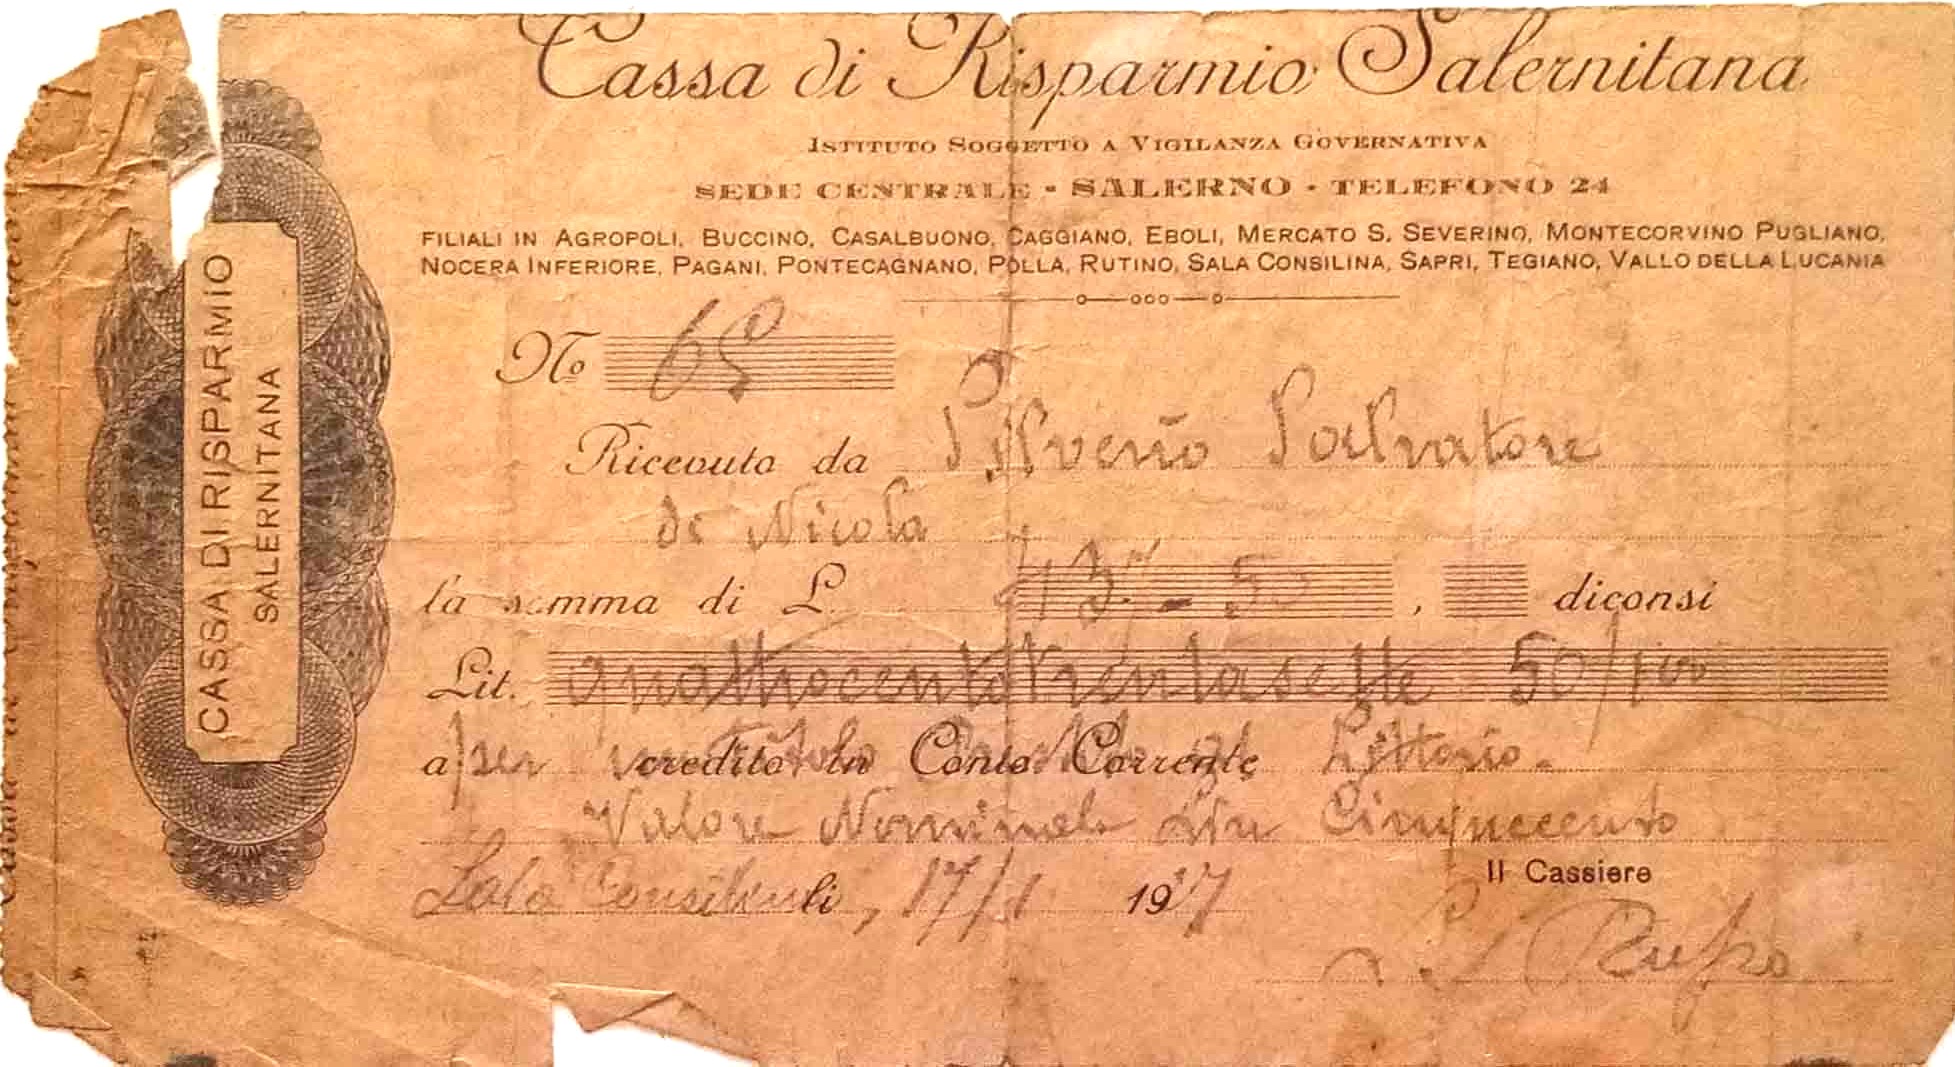 Cassa di Risparmio Salernitana
ISTITUTO SOGGETTO A VIGILANZA GOVERNATIVA
SEDE CENTRALE - SALERNO - TELEFONO 24
FILIALI IN AGROPOLI, BUCCINO, CASALBUONO, CAGGIANO, EBOLI, MERCATO S. SEVERINO, MONTECORVINO PUGLIANO,
NOCERA INFERIORE, PAGANI, PONTECAGNANO, POLLA, RUTINO, SALA CONSILINA, SAPRI, TEGIANO, VALLO DELLA LUCANIA
CASSA DI RISPARMIO
SALERNITANA
No 65
Ricevuto da Silverio Salvatore
di Nicola
la somma di L. 437 - 50 , diconsi
Lit. Quattrocentotrentasette 50/100
a credito in Conto Corrente
per Littorio.
Valore Nominale Lire Cinquecento
Sala Consilina li, 17/1 1927
Il Cassiere
Rufso